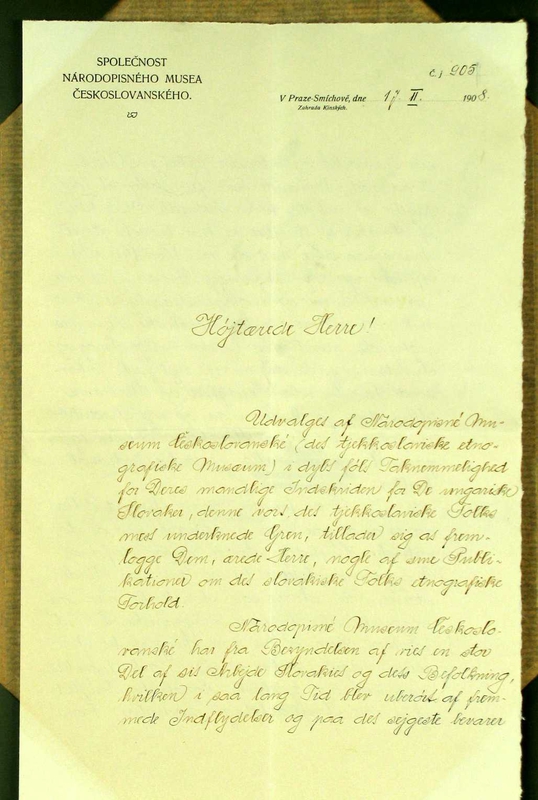 SPOLEČNOST
NÁRODOPISNÉHO MUSEA
ČESKOSLOVANSKÉHO.
č. 905
V Praze-Smíchově, dne 17. II. 1908.
Zahrada Kinských.
Højtærede Herre!
Udvalges af Národopisné Mu-
seum Českoslovanské (des tjekkoslaviske etno-
grafiske Museum) i dybt følt Taknemmelighed
for Deres mandige Indskriden for De ungariske
Slovaker, denne vors, des tjekkoslaviske Folks
mees undertrykede Gren, tillader sig as frem-
lægge Dem, ærede Herre, nogle af sine Publi-
kationer om des slovakiske Folks etnografiske
Forhold.
Národopisné Museum Českoslo-
vanské har fra Begyndelsen af vies en stor
Del af sis Arbejde Slovakies og dess Befolkning,
hvilken i saa lang Tid blev uberørt af frem-
mede Indflydelser og paa des sejgeste bevarer